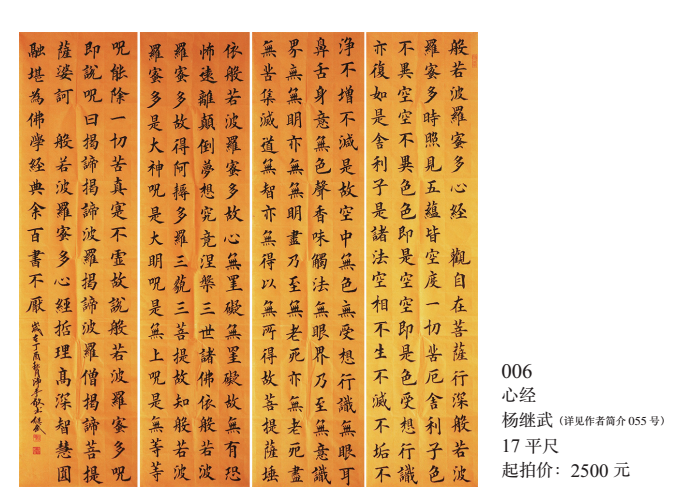 般若波羅蜜多心經 觀自在菩薩行深般若波
羅蜜多時照見五蘊皆空度一切苦厄舍利子色
不異空空不異色色即是空空即是色受想行識
亦復如是舍利子是諸法空相不生不滅不垢不
淨不增不減是故空中無色無受想行識無眼耳
鼻舌身意無色聲香味觸法無眼界乃至無意識
界無無明亦無無明盡乃至無老死亦無老死盡
無苦集滅道無智亦無得以無所得故菩提薩埵
依般若波羅蜜多故心無罣礙無罣礙故無有恐
怖遠離顛倒夢想究竟涅槃三世諸佛依般若波
羅蜜多故得阿耨多羅三藐三菩提故知般若波
羅蜜多是大神咒是大明咒是無上咒是無等等
咒能除一切苦真寔不虛故說般若波羅蜜多咒
即說咒曰揭諦揭諦波羅揭諦波羅僧揭諦菩提
薩婆訶 般若波羅蜜多心經哲理高深智慧圓
融堪為佛學經典余百書不厭
歲在丁酉
006
心经
杨继武（详见作者简介 055 号）
17 平尺
起拍价：2500 元